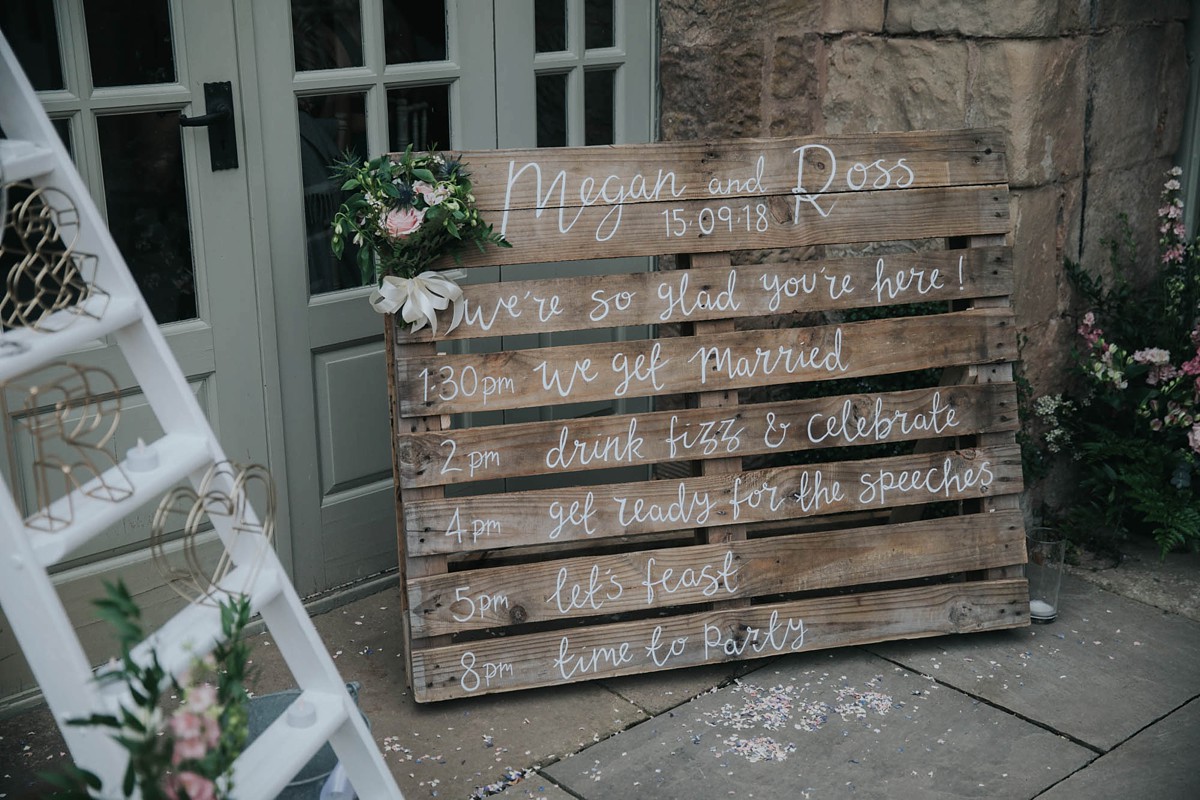 Megan and Ross
15·09·18
We're so glad you're here!
1:30pm We get Married
2pm drink fizz & Celebrate
4pm get ready for the speeches
5pm let's feast
8pm time to Party